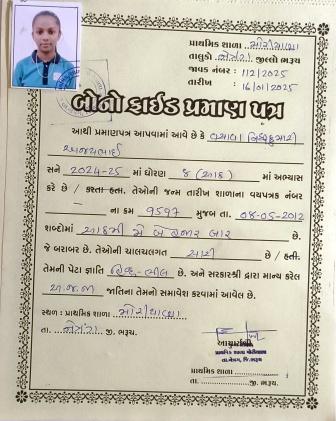 પ્રાથમિક શાળા મોરીયાણા
તાલુકો નેત્રંગ જીલ્લો ભરૂચ
જાવક નંબર : 112/2025
તારીખ : 16/01/2025
બોનોફાઈડ પ્રમાણ પત્ર
આથી પ્રમાણપત્ર આપવામાં આવે છે કે વસાવા
અજયભાઈ
સને 2024-25 માં ધોરણ 8 (આઠ) માં અભ્યાસ
કરે છે / કરતા હતા. તેઓની જન્મ તારીખ શાળાના વયપત્રક નંબર
ના ક્રમ 9597 મુજબ તા. 08-05-2012
શબ્દોમાં આઠમી મે બે હજાર બાર છે.
જે બરાબર છે. તેઓની ચાલચલગત સારી છે / હતી.
તેમની પેટા જ્ઞાતિ હિન્દુ-ભીલ છે. અને સરકારશ્રી દ્વારા માન્ય કરેલ
અ.જ.જા જાતિના તેમનો સમાવેશ કરવામાં આવેલ છે.
સ્થળ : પ્રાથમિક શાળા મોરીયાણા
તા. નેત્રંગ જી. ભરૂચ.
આચાર્યશ્રી
પ્રાથમિક શાળા મોરીયાણા
તા.નેત્રંગ, જિ.ભરૂચ
પ્રાથમિક શાળા
તા. જી. ભરૂચ.